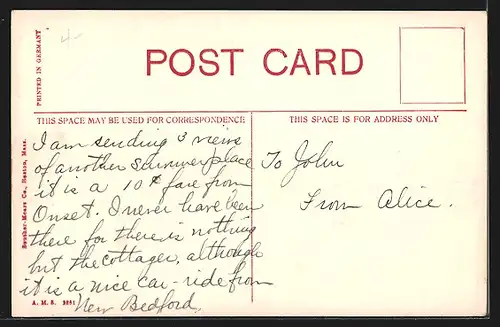 PRINTED IN GERMANY
POST CARD
THIS SPACE MAY BE USED FOR CORRESPONDENCE
THIS SPACE IS FOR ADDRESS ONLY
I am sending 3 views
of another summer place
it is a 10¢ fare from
Onset. I never have been
there for there is nothing
but the cottages, although
it is a nice car-ride from
New Bedford.
To John
From Alice.
Co., Boston, Mass.
A. M. S.